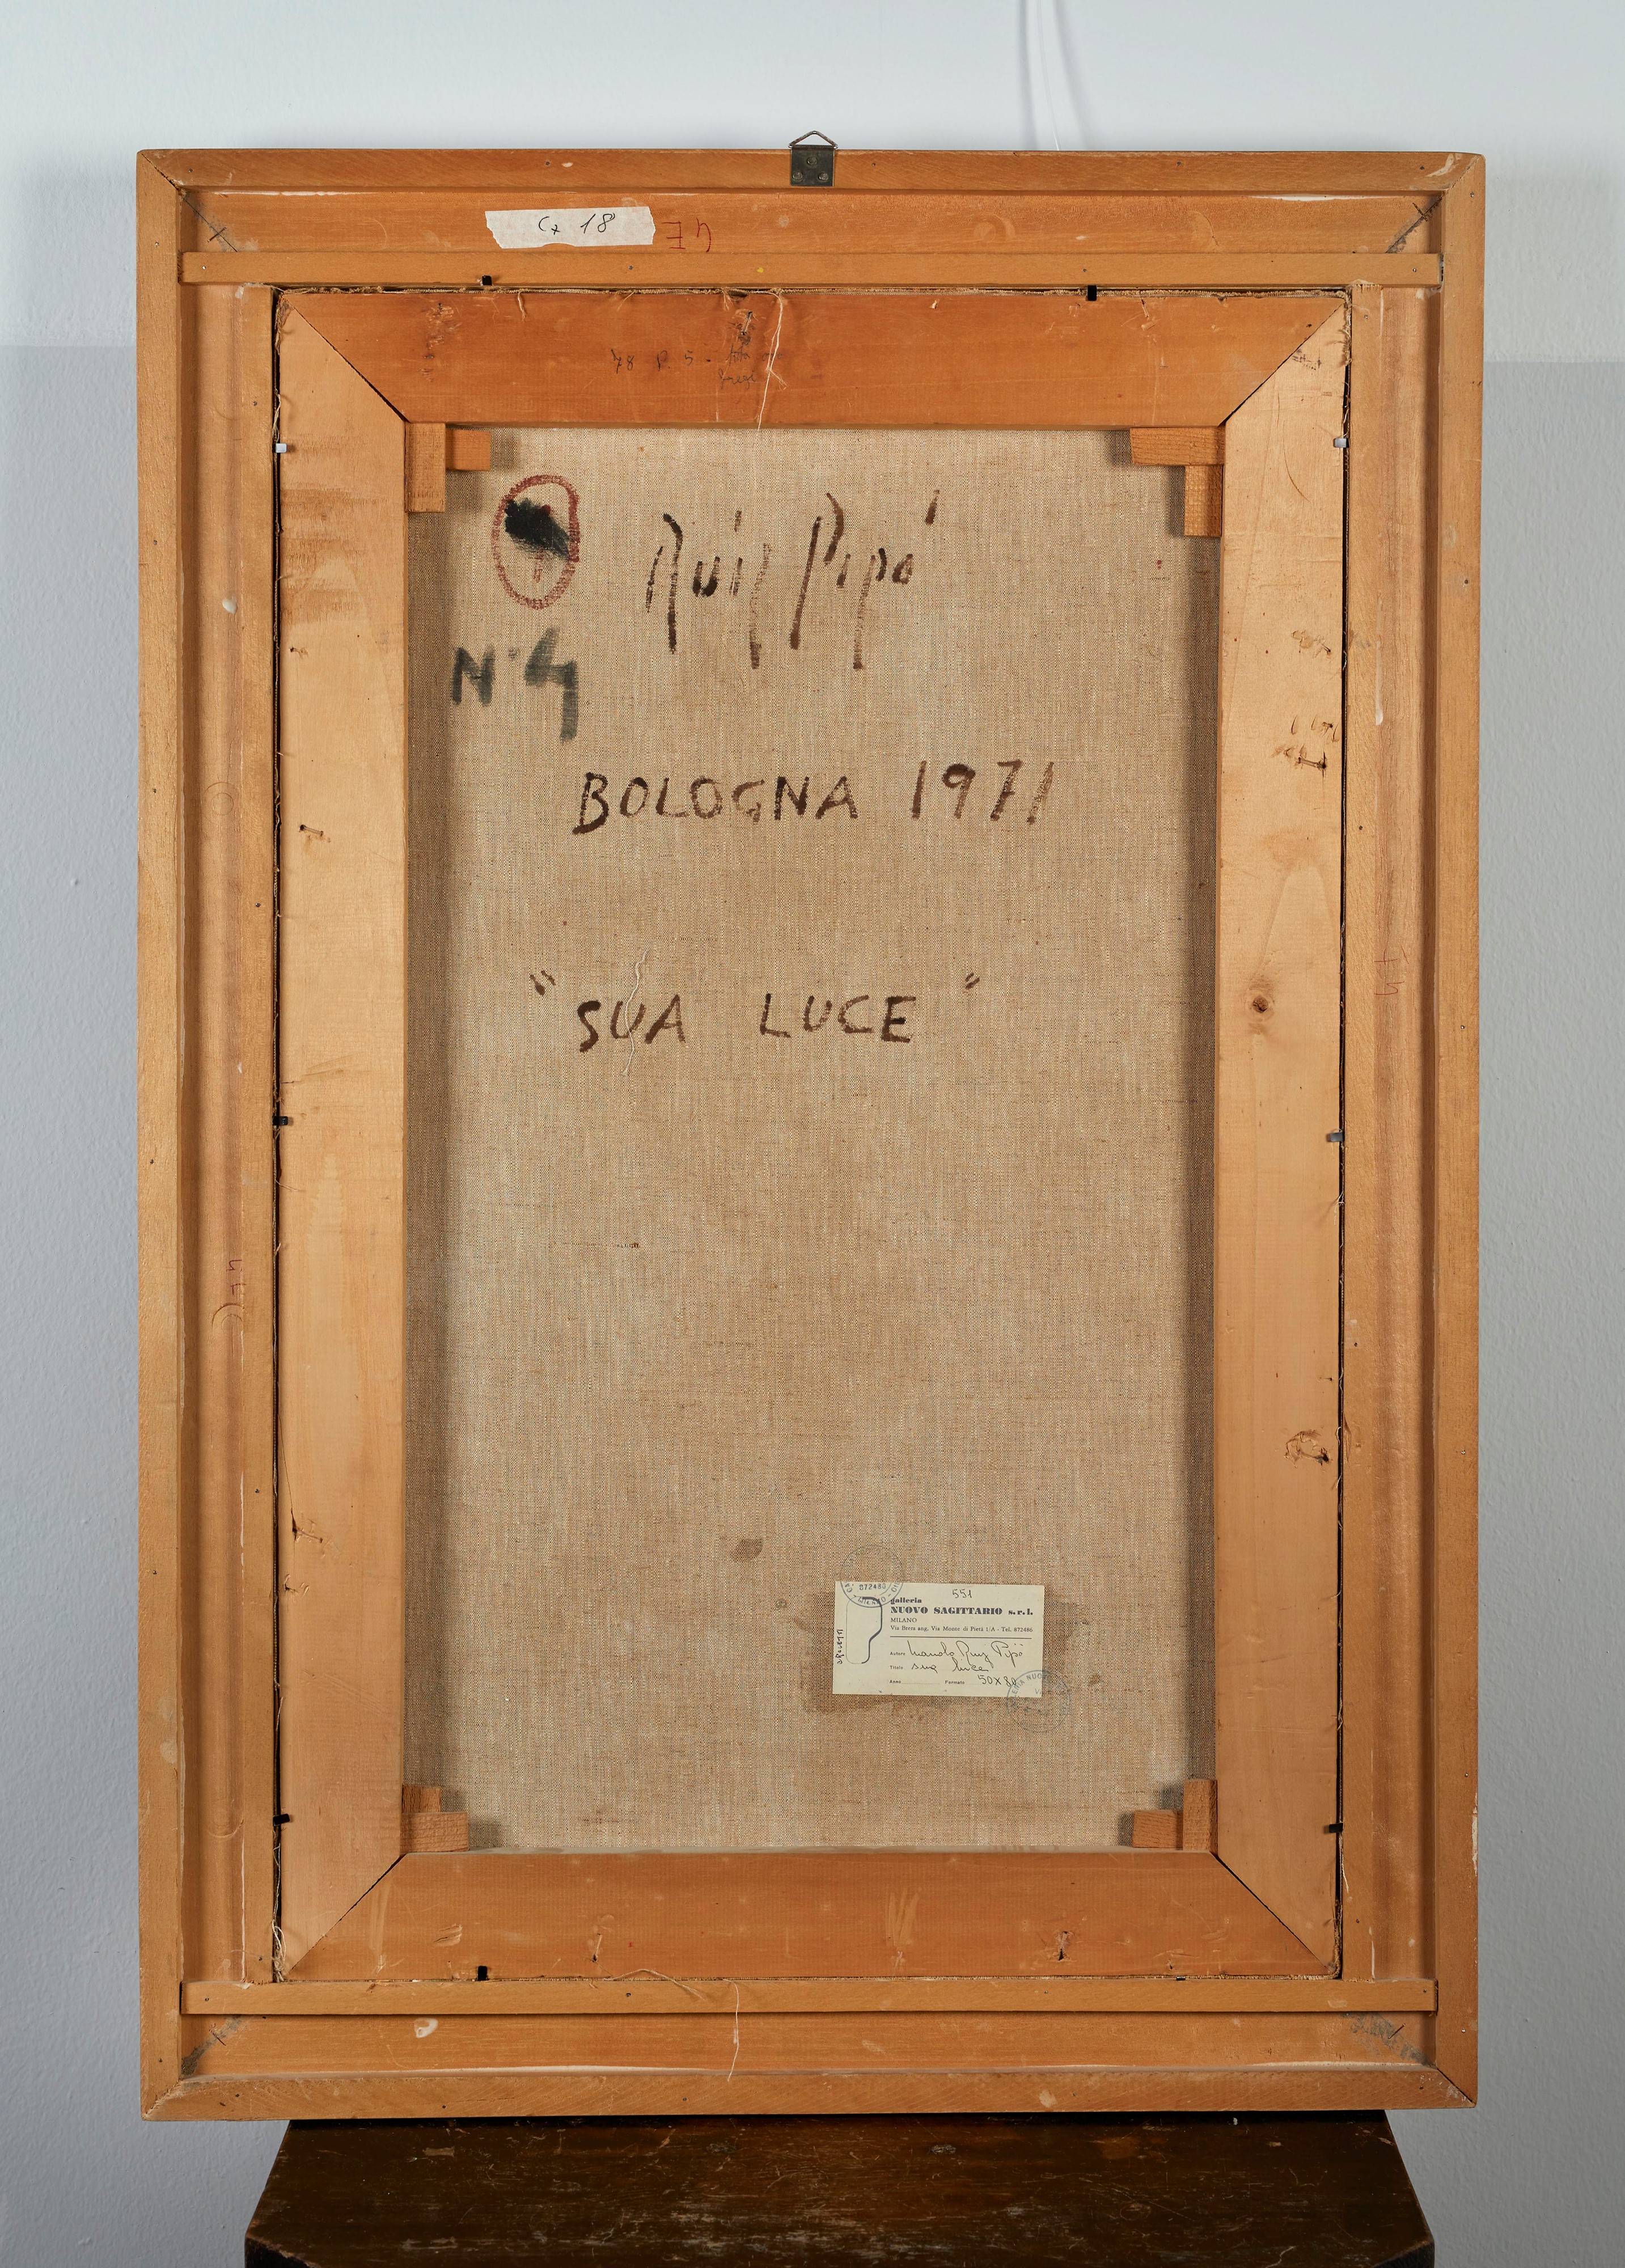 Cx 18
Ruiz Pipó
N° 4
BOLOGNA 1971
"SUA LUCE"
072480
MILANO
551
galleria
NUOVO SAGITTARIO s.r.l.
MILANO
Via Brera ang. Via Monte di Pietà 1/A - Tel. 872486
Autore Manolo Ruiz Pipò
Titolo sua luce
Anno Formato 50x80